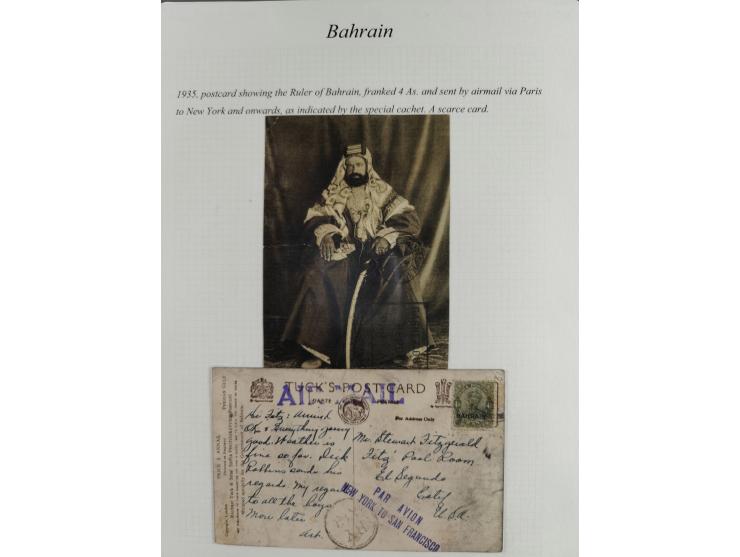 Bahrain
1935, postcard showing the Ruler of Bahrain, franked 4 As. and sent by airmail via Paris
to New York and onwards, as indicated by the special cachet. A scarce card.
TUCK'S POST CARD
CARTE POSTALE
AIR MAIL
For Address Only
BAHRAIN
PRICE 2 ANNAS.
Fitz: Arrived
OK & Everything going
good. Weather is
fine so far. Dick
Robbins sends his
regards. My regards
to all the boys
More later
Art.
Mr. Stewart Fitzgerald
Fitz' Pool Room
El Segundo
Calif
U.S.A.
PAR AVION
NEW YORK TO SAN FRANCISCO